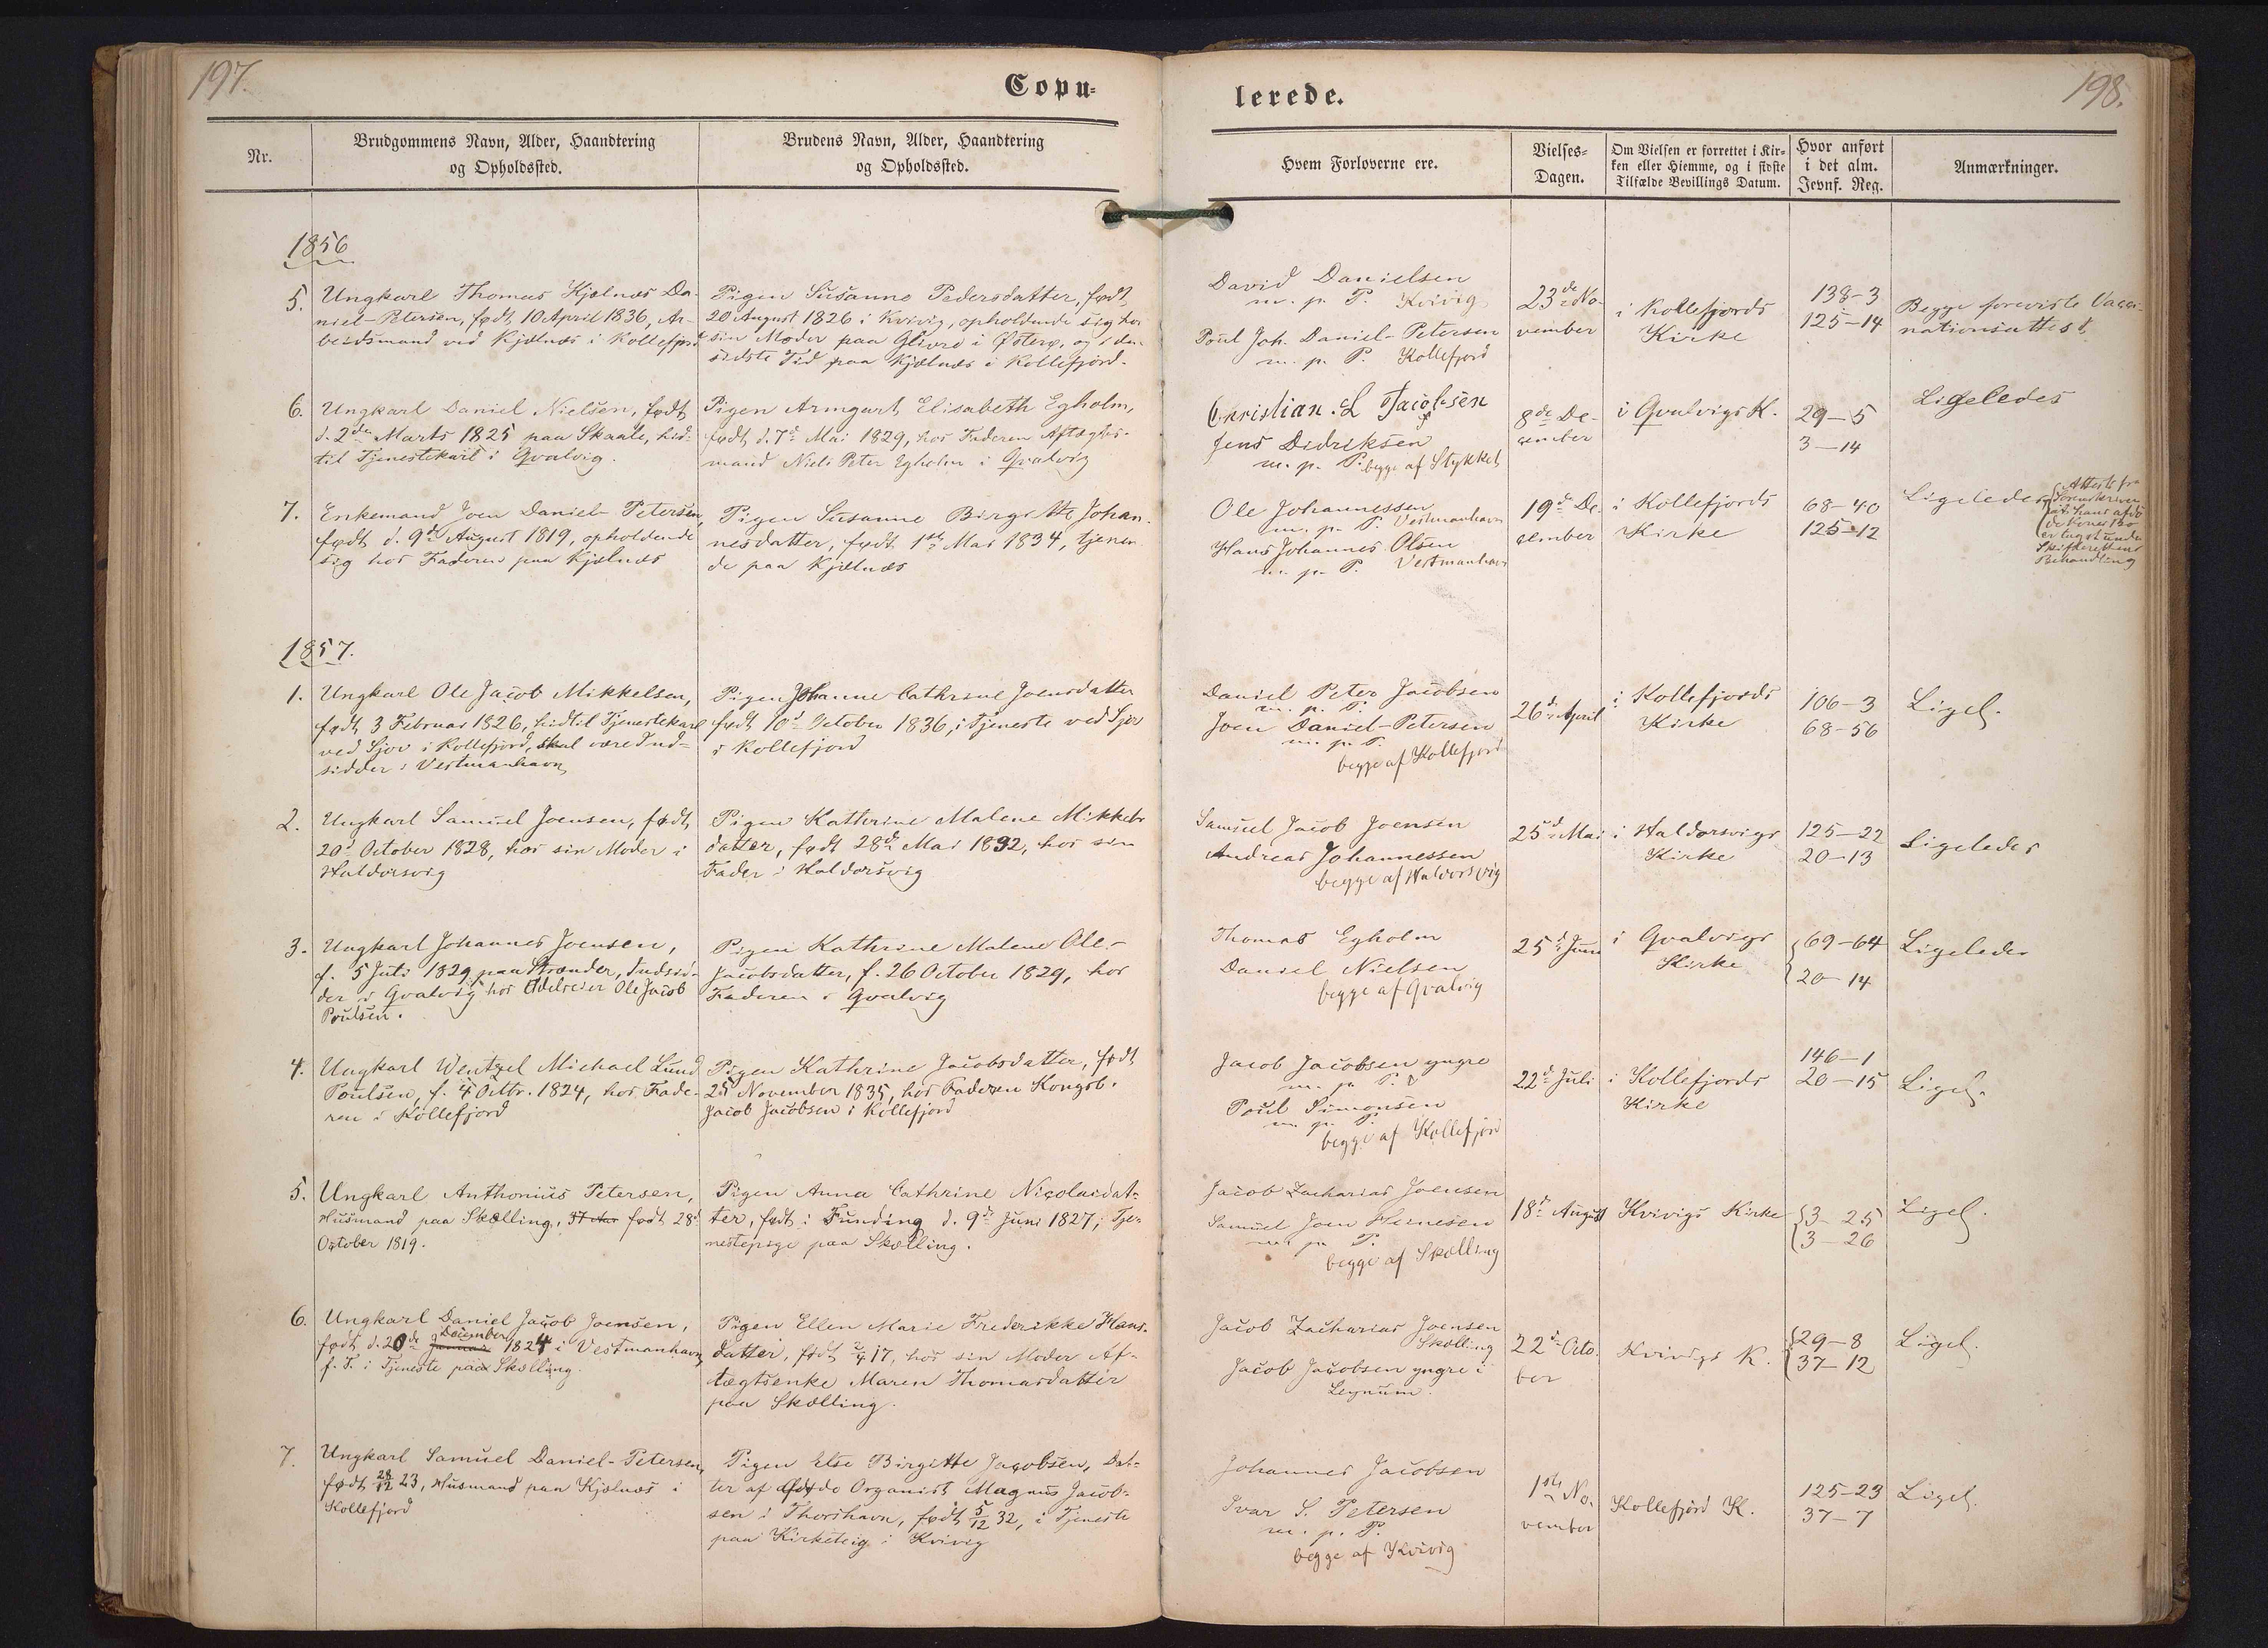 197.
Copu=
Nr.
Brudgommens Navn, Alder, Haandtering
og Opholdssted.
Brudens Navn, Alder, Haandtering
og Opholdssted.
1856
5.
Ungkarl Thomas Kjælnæs Da-
niel-Petersen, født 10 April 1836, Ar-
beidsmand ved Kjælnæs i Kollefjord
Pigen Susanne Pedersdatter, født
20 August 1826 i Kvivig, opholdende sig hos
sin Moder paa Glivre i Østerø, og i den
sidste Tid paa Kjælnæs i Kollefjord.
6.
Ungkarl Daniel Nielsen, født
d. 2den Marts 1825 paa Skaale, hid-
til Tjenestekarl i Qvalvig.
Pigen Armgart Elisabeth Egholm,
født d. 7de Mai 1829, hos Faderen Aftægts-
mand Niels Peter Egholm i Qvalvig
7.
Enkemand Joen Daniel-Petersen,
født d. 9de August 1819, opholdende
sig hos Faderen paa Kjælnæs
Pigen Susanne Birgitte Johan-
nesdatter, født 1ste Mai 1834, tjenen-
de paa Kjælnæs
1857.
1.
Ungkarl Ole Jacob Mikkelsen,
født 3 Februar 1826, hidtil Tjenestekarl
ved Sjov i Kollefjord, skal være Ind-
sidder i Vestmanhavn
Pigen Johanne Cathrine Joensdatter
født 10de October 1836, i Tjeneste ved Sjov
i Kollefjord
2.
Ungkarl Samuel Joensen, født
20de October 1828, hos sin Moder i
Haldorsvig
Pigen Kathrine Malene Mikkels-
datter, født 28de Mai 1832, hos sin
Fader i Haldorsvig
3.
Ungkarl Johannes Joensen,
f. 5 Juli 1829 paa Strænder, Indsid-
der i Qvalvig hos Odelseier Ole Jacob
Poulsen.
Pigen Kathrine Malene Ole-
Jacobsdatter, f. 26 October 1829, hos
Faderen i Qvalvig
4.
Ungkarl Wentzel Michael Lund
Poulsen, f. 4 Octbr. 1824, hos Fade-
ren i Kollefjord
Pigen Kathrine Jacobsdatter, født
25 November 1835, hos Faderen Kongsb.
Jacob Jacobsen i Kollefjord
5.
Ungkarl Anthonius Petersen,
Husmand paa Skælling, 37 Aar født 28de
October 1819.
Pigen Anna Cathrine Nicolaidat-
ter, født i Funding d. 9de Juni 1827, Tje-
nestepige paa Skælling.
6.
Ungkarl Daniel Jacob Joensen,
December
født d. 20de Januar 1824 i Vestmanhavn,
f. T. i Tjeneste paa Skælling.
Pigen Ellen Marie Frederikke Hans-
datter, født 2/4 17, hos sin Moder Af-
tægtsenke Maren Thomasdatter
paa Skælling.
7.
Ungkarl Samuel Daniel-Petersen,
født 28/12 23, Husmand paa Kjælnæs i
Kollefjord
Pigen Else Birgitte Jacobsen, Dat-
ter af Organist Magnus Jacob-
sen i Thorshavn, født 5/12 32, i Tjeneste
paa Kirketeig i Kvivig
198.
lerede.
Hvem Forloverne ere.
Vielses-
Dagen.
Om Vielsen er forrettet i Kir-
ken eller Hiemme, og i sidste
Tilfælde Bevillings Datum.
Hvor anført
i det alm.
Jevnf. Reg.
Anmærkninger.
David Danielsen
m. p. P. Kvivig
Poul Joh. Daniel-Petersen
m. p. P. Kollefjord
23de No-
vember
i Kollefjords
Kirke
138-3
125-14
Begge foreviste Vacci-
nationsattest.
Christian. L Jacobsen
Jens Didriksen
m. p. P. begge af Stykket
8de De-
cember
i Qvalvigs K.
29-5
3-14
Ligeledes
Ole Johannessen
m. p. P. Vestmanhavn
Hans Johannes Olsen
m. p. P. Vestmanhavn
19de De-
cember
i Kollefjords
Kirke
68-40
125-12
Ligeledes,
Attest fra
Sorenskriveren
at hans afdø-
de Kones Bo
er tagst under
Skifterettens
Behandling
Daniel Peter Jacobsen
m. p. P.
Joen Daniel-Petersen
m. p. P.
begge af Kollefjord
26de April
i Kollefjords
Kirke
106-3
68-56
Ligel.
Samuel Jacob Joensen
Andreas Johannessen
begge af Haldorsvig
25de Mai
i Haldorsvigs
Kirke
125-22
20-13
Ligeledes
Thomas Egholm
Daniel Nielsen
begge af Qvalvig
25de Juni
i Qvalvigs
Kirke
69-64
20-14
Ligeledes
Jacob Jacobsen yngre
m. p. P.
Poul Simonsen
m. p. P.
begge af Kollefjord
22de Juli
i Kollefjords
Kirke
146-1
20-15
Ligel.
Jacob Zacharias Joensen
Samuel Joen Heinesen
m. p. P.
begge af Skælling
18de August
Kvivigs Kirke
3-25
3-26
Ligel.
Jacob Zacharias Joensen
Skælling
Jacob Jacobsen yngre i
Leynum.
22de Octo-
ber
Kvivigs K.
29-8
37-12
Ligel.
Johannes Jacobsen
Ivar S. Petersen
m. p. P.
begge af Kvivig
1ste No-
vember
Kollefjord K.
125-23
37-7
Ligel.